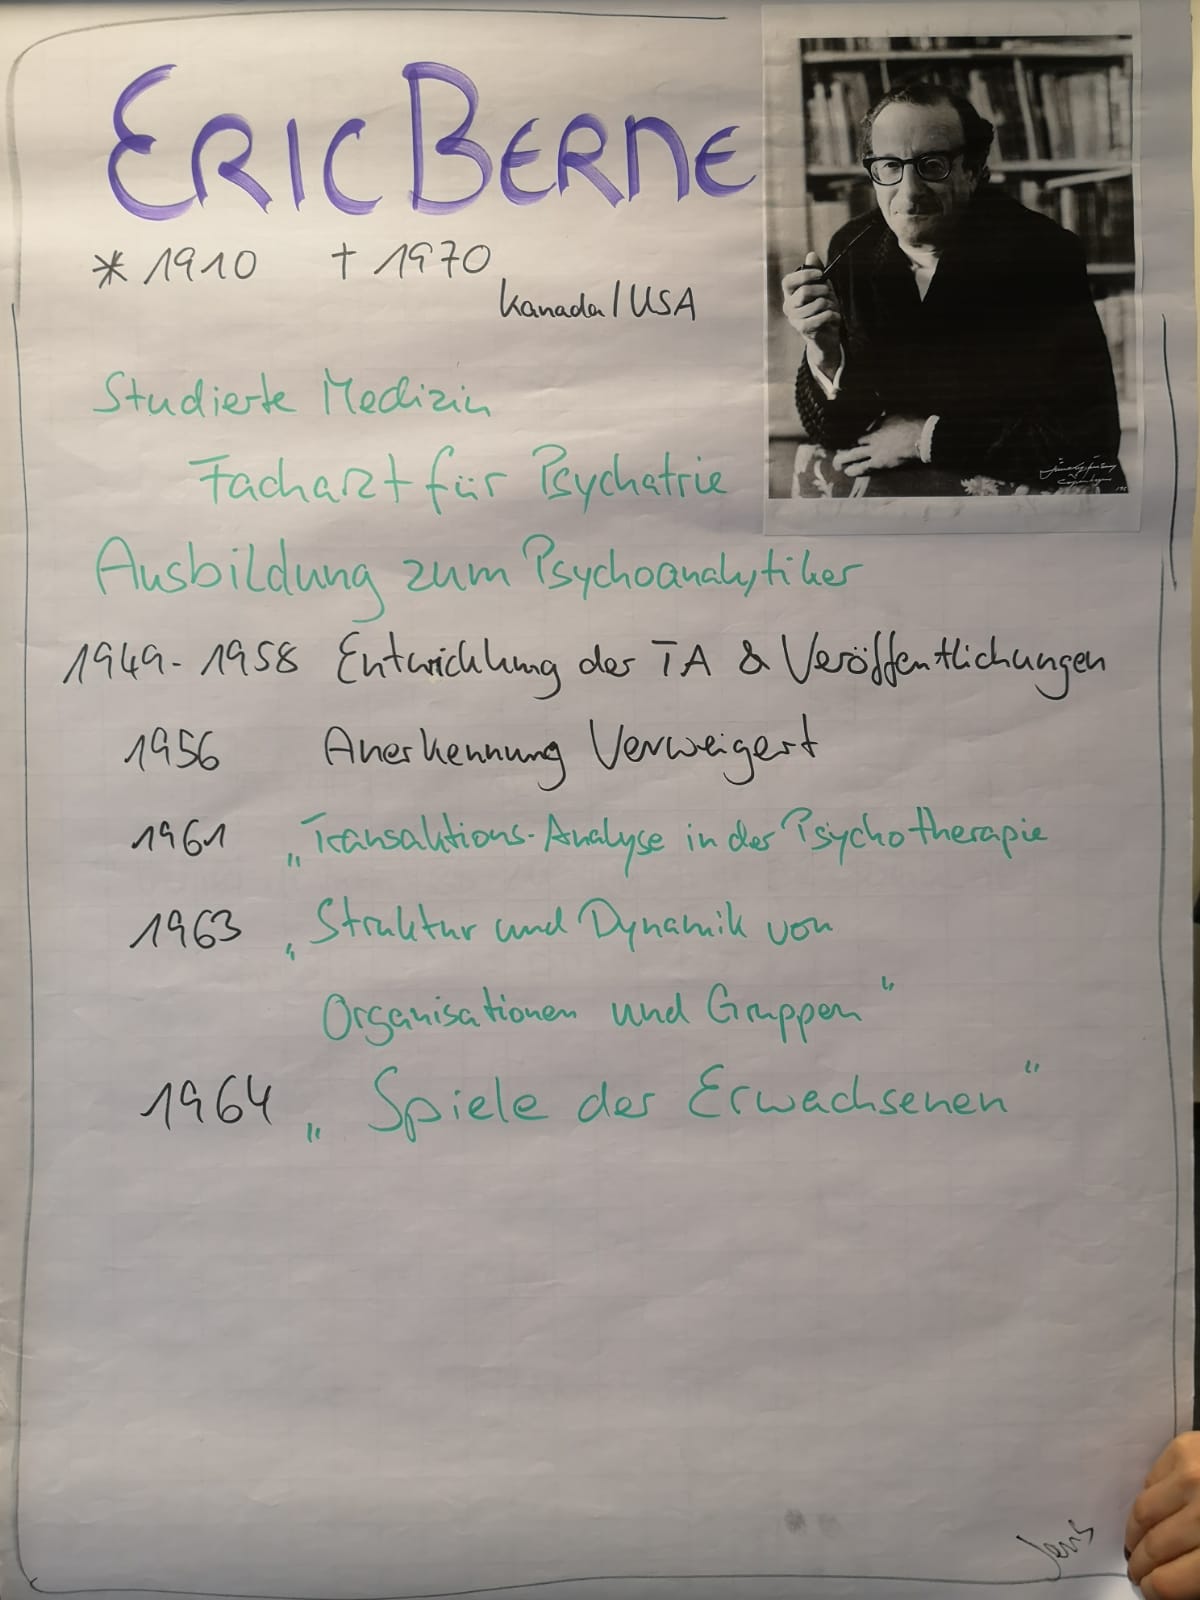 ERIC BERNE
* 1910 † 1970
Kanada/USA
Studierte Medizin
Facharzt für Psychatrie
Ausbildung zum Psychoanalytiker
1949-1958 Entwicklung der TA & Veröffentlichungen
1956 Anerkennung Verweigert
1961 „Transaktions-Analyse in der Psychotherapie
1963 „Struktur und Dynamik von
Organisationen und Gruppen“
1964 „Spiele der Erwachsenen“
Jens